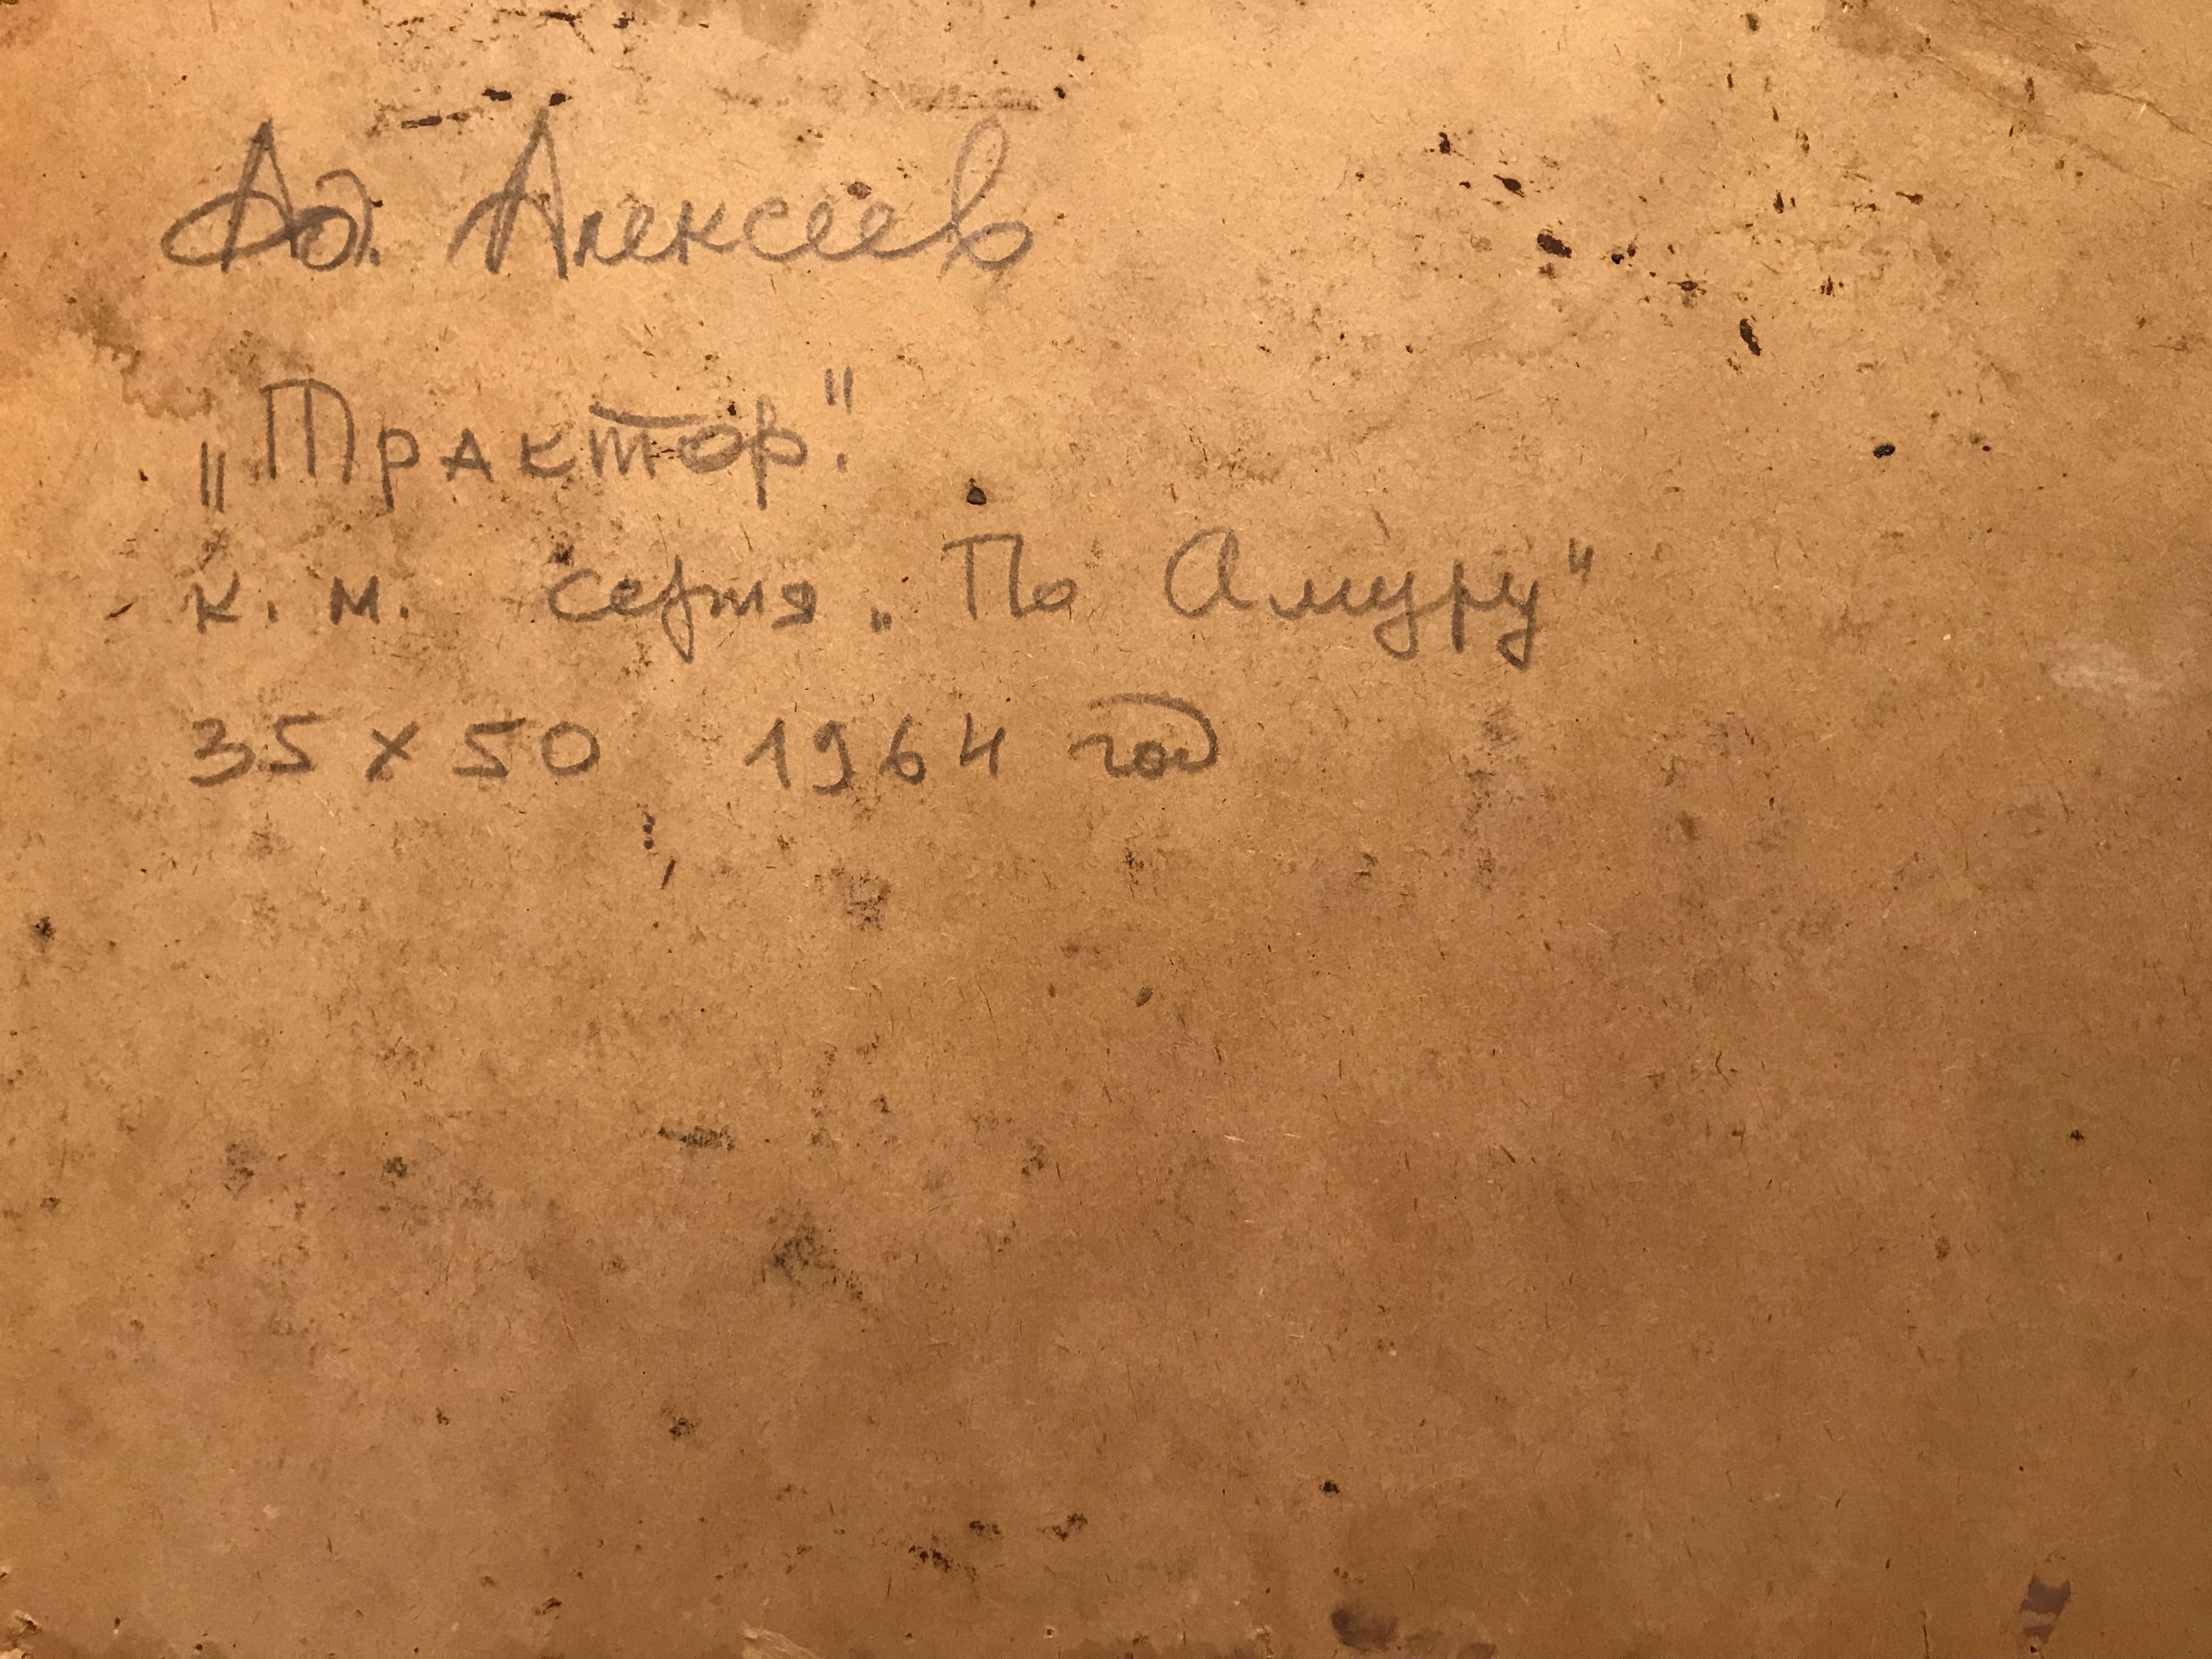 Ад. Алексеев
„Трактор."
к. м. серия „По Амуру"
35 х 50 1964 год